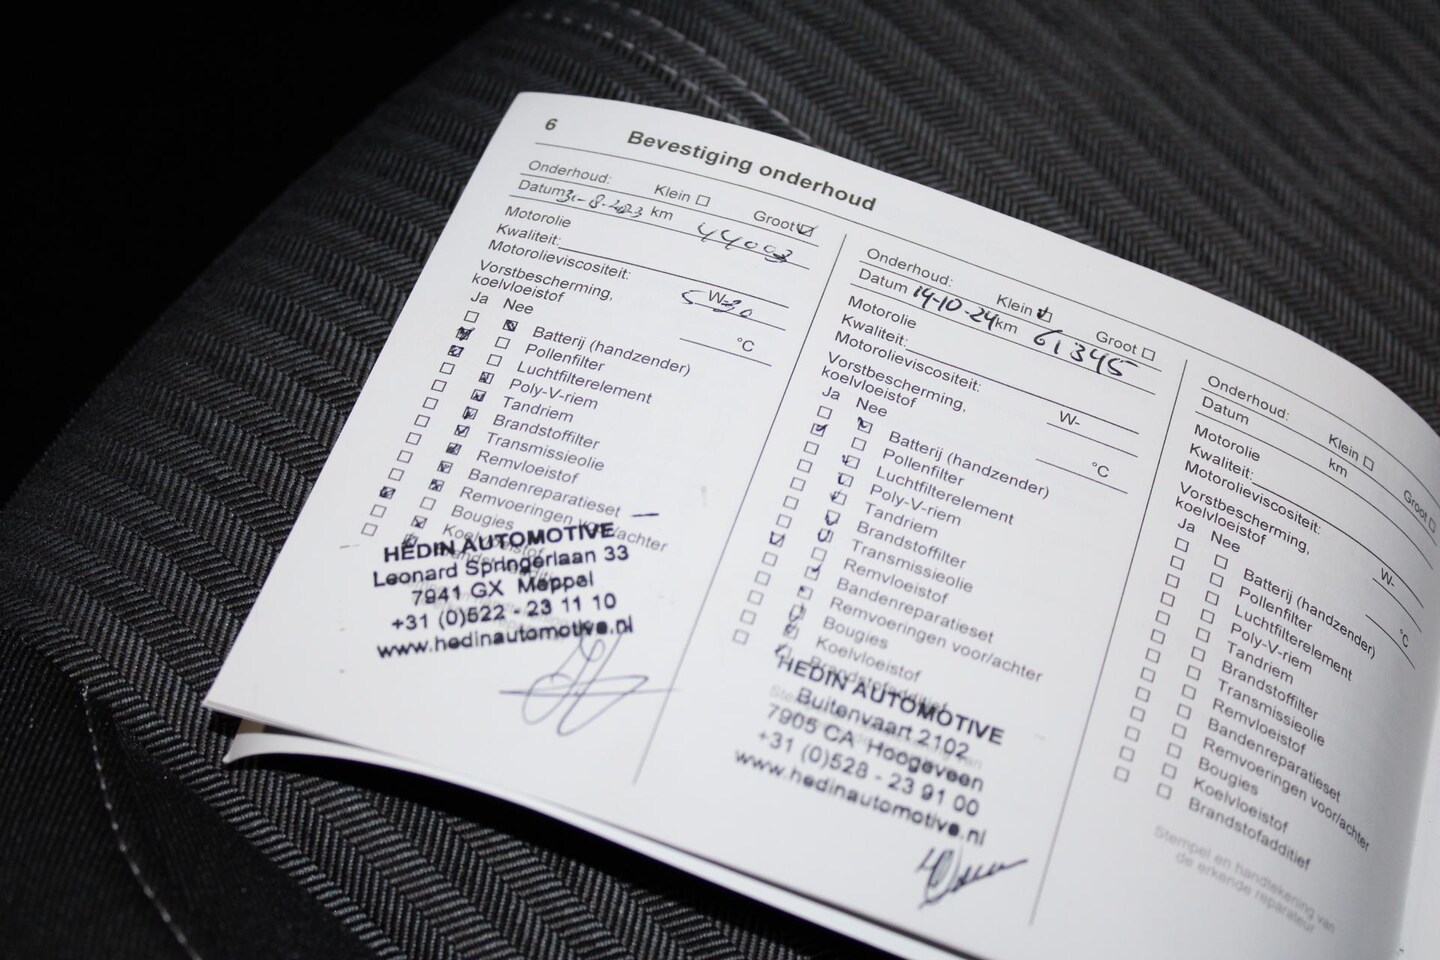 6
Bevestiging onderhoud
Onderhoud: Klein Groot
Datum 31-8-2023 km 44003
Motorolie
Kwaliteit:
Motorolieviscositeit: 5 W-30
Vorstbescherming,
koelvloeistof °C
Ja Nee
Batterij (handzender)
Pollenfilter
Luchtfilterelement
Poly-V-riem
Tandriem
Brandstoffilter
Transmissieolie
Remvloeistof
Bandenreparatieset
Remvoeringen voor/achter
Bougies
Koelvloeistof
HEDIN AUTOMOTIVE
Leonard Springerlaan 33
7941 GX Meppel
+31 (0)522 - 23 11 10
www.hedinautomotive.nl
Onderhoud: Klein Groot
Datum 14-10-24 km 61345
Motorolie
Kwaliteit:
Motorolieviscositeit: W-
Vorstbescherming,
koelvloeistof °C
Ja Nee
Batterij (handzender)
Pollenfilter
Luchtfilterelement
Poly-V-riem
Tandriem
Brandstoffilter
Transmissieolie
Remvloeistof
Bandenreparatieset
Remvoeringen voor/achter
Bougies
Koelvloeistof
Brandstofadditief
HEDIN AUTOMOTIVE
Buitenvaart 2102
7905 CA Hoogeveen
+31 (0)528 - 23 91 00
www.hedinautomotive.nl
Onderhoud: Klein Groot
Datum km
Motorolie
Kwaliteit:
Motorolieviscositeit: W-
Vorstbescherming,
koelvloeistof °C
Ja Nee
Batterij (handzender)
Pollenfilter
Luchtfilterelement
Poly-V-riem
Tandriem
Brandstoffilter
Transmissieolie
Remvloeistof
Bandenreparatieset
Remvoeringen voor/achter
Bougies
Koelvloeistof
Brandstofadditief
Stempel en handtekening van
de erkende reparateur